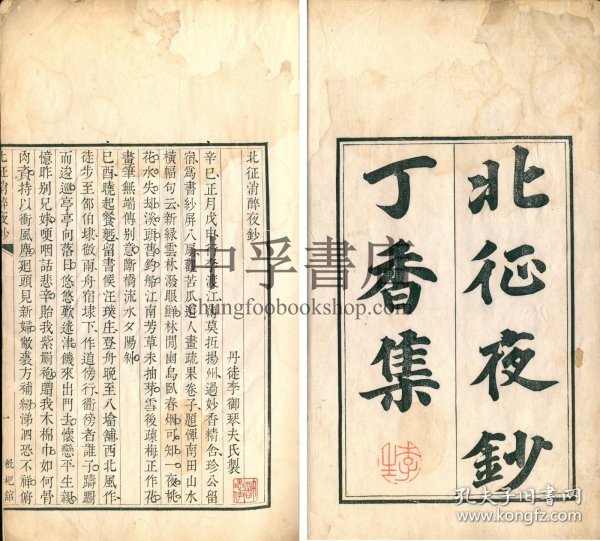 北征夜鈔
丁香集
北征消醉夜鈔
丹徒李御琴夫氏製
辛巳正月戊申夜李渡江薄莫抵揚州過妙香精舍珍公留
宿為書紗屏八扇觀苦瓜道人畫蔬果卷子題惲南田山水
橫幅句云新綠雲林潑眼餘林閒幽鳥臥春烟可知一夜桃
花水失却溪頭舊釣船江南芳草未抽芽雪後疎梅正作花
畫筆無端傳別意斷橋流水夕陽斜
己酉曉起餐麫留書候汪璞庄登舟晚至八塔舖西北風作
徒步至邵伯埭微雨舟宿埭下作道傍行衝傍者誰子躊躇
而逡巡亭亭向落日悠悠歎遠津饑來出門去懷戀平生親
憶昨別兄嫂哽咽話悲辛貽我紫羅袍贈我木棉巾如何骨
肉資持以衝風塵迴頭見新婦敝裘方補紉涕泗恐不祥俯
北征消醉夜鈔
一
枇杷館
中孚書店
chungfoobookshop.com
孔夫子旧书网
www.kongfz.com